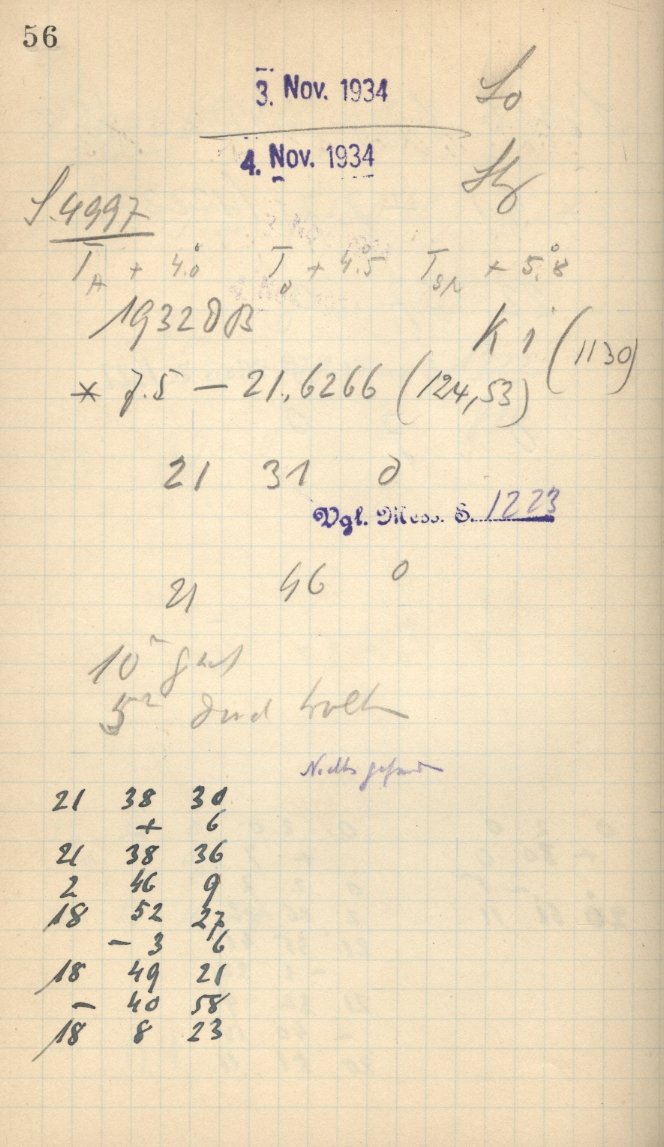 56
3. Nov. 1934 So
4. Nov. 1934
S.4997
T_A + 4.°0 T_O + 4.°5 T_Sp + 5.°8
1932 OB K 1 (1130)
* 7.5 — 21,6266 (124,53)
21 31 0
Vgl. Mess. S. 1223
21 46 0
10ᵐ gut
5ᵐ durch Wolken
Nichts gefunden
21 38 30
+ 6
21 38 36
2 46 9
18 52 27
- 3 6
18 49 21
- 40 58
18 8 23